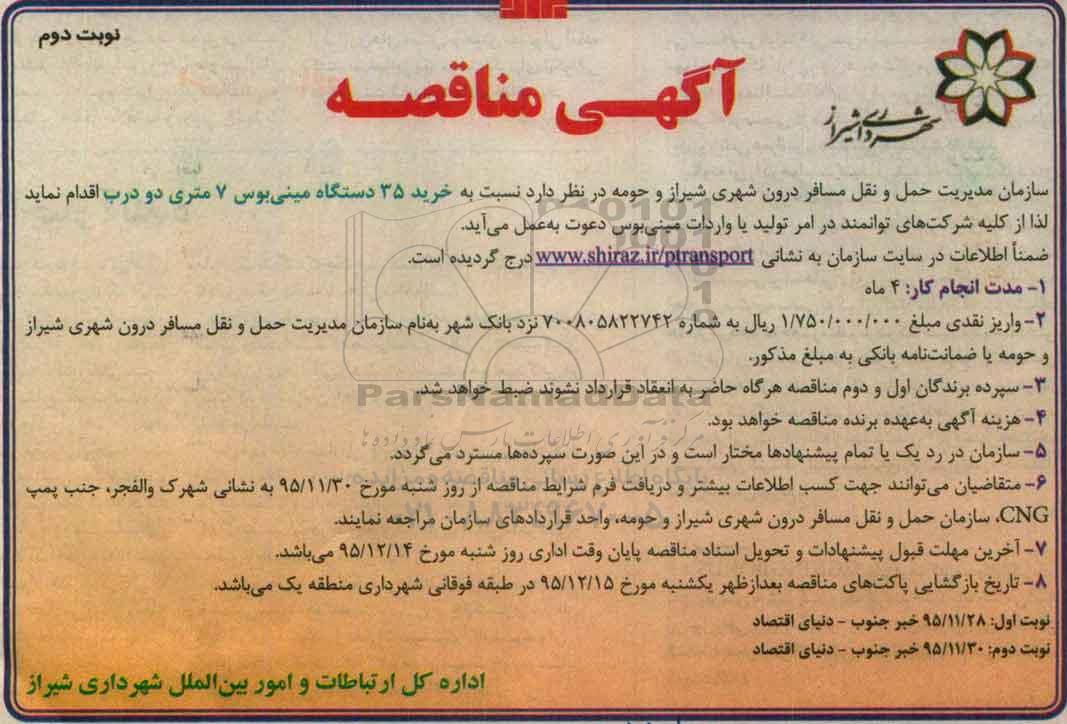 نوبت دوم
آگهی مناقصه
شهرداری شیراز
سازمان مدیریت حمل و نقل مسافر درون شهری شیراز و حومه در نظر دارد نسبت به خرید ۳۵ دستگاه مینی‌بوس ۷ متری دو درب اقدام نماید
لذا از کلیه شرکت‌های توانمند در امر تولید یا واردات مینی‌بوس دعوت به‌عمل می‌آید.
ضمناً اطلاعات در سایت سازمان به نشانی www.shiraz.ir/ptransport درج گردیده است.
۱- مدت انجام کار: ۴ ماه
۲- واریز نقدی مبلغ ۱/۷۵۰/۰۰۰/۰۰۰ ریال به شماره ۷۰۰۸۰۵۸۲۲۷۴۲ نزد بانک شهر به‌نام سازمان مدیریت حمل و نقل مسافر درون شهری شیراز
و حومه یا ضمانت‌نامه بانکی به مبلغ مذکور.
۳- سپرده برندگان اول و دوم مناقصه هرگاه حاضر به انعقاد قرارداد نشوند ضبط خواهد شد.
ParsNamadData
۴- هزینه آگهی به‌عهده برنده مناقصه خواهد بود.
مرکز فرآوری اطلاعات پارس نماد داده ها
۵- سازمان در رد یک یا تمام پیشنهادها مختار است و در این صورت سپرده‌ها مسترد می‌گردد.
۶- متقاضیان می‌توانند جهت کسب اطلاعات بیشتر و دریافت فرم شرایط مناقصه از روز شنبه مورخ ۹۵/۱۱/۳۰ به نشانی شهرک والفجر، جنب پمپ
CNG، سازمان حمل و نقل مسافر درون شهری شیراز و حومه، واحد قراردادهای سازمان مراجعه نمایند.
۷- آخرین مهلت قبول پیشنهادات و تحویل اسناد مناقصه پایان وقت اداری روز شنبه مورخ ۹۵/۱۲/۱۴ می‌باشد.
۸- تاریخ بازگشایی پاکت‌های مناقصه بعدازظهر یکشنبه مورخ ۹۵/۱۲/۱۵ در طبقه فوقانی شهرداری منطقه یک می‌باشد.
نوبت اول: ۹۵/۱۱/۲۸ خبر جنوب - دنیای اقتصاد
نوبت دوم: ۹۵/۱۱/۳۰ خبر جنوب - دنیای اقتصاد
اداره کل ارتباطات و امور بین‌الملل شهرداری شیراز